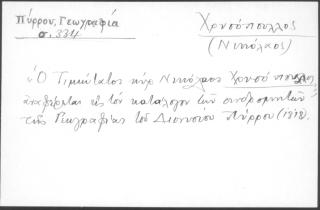 Πύρρου, Γεωγραφία
σ. 334
Χρυσόπουλλος
(Νικόλαος)
Ὁ Τιμιώτατος κύρ Νικόλαος Χρυσόπουλλος
ἀναφέρεται εἰς τόν κατάλογον τῶν συνδρομητῶν
τῆς Γεωγραφίας τοῦ Διονυσίου Πύρρου (1818).